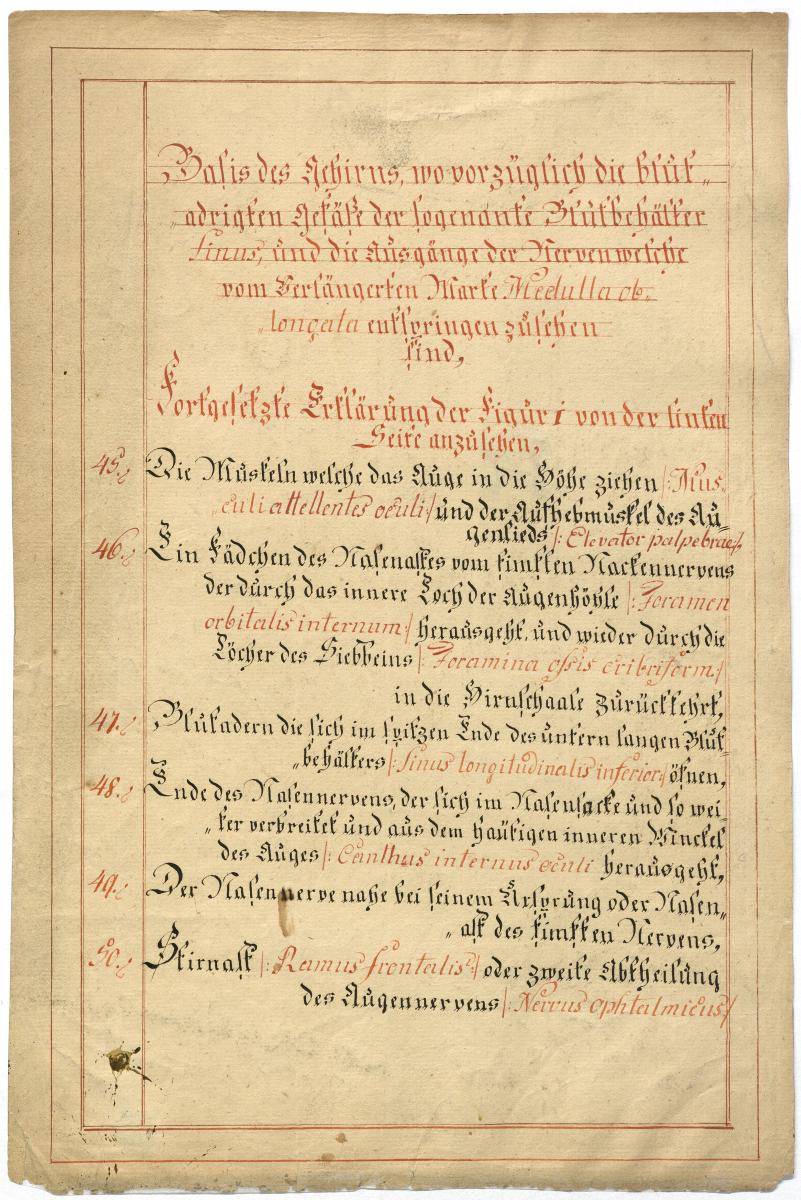 Basis des Gehirns, wo vorzüglich die blut„
„adrigten Gefäße der sogenante Blutbehälter
sinus, und die Ausgänge der Nerven welche
vom Verlängerten Marke Medulla ob„
„longata entspringen zu sehen
sind,
Fortgesetzte Erklärung der Figur 1 von der linken
Seite anzusehen,
45. Die Muskeln welche das Auge in die Höhe ziehen /: Mus„
„culi attellentes oculi :/ und der Aufhebmuskel des Au„
genlieds /: Elevator palpebrae :/
46. Ein Fädchen des Nasenastes vom fünften Nackennervens
der durch das innere Loch der Augenhöhle /: Foramen
orbitalis internum :/ herausgeht, und wieder durch die
Löcher des Siebbeins /: Foramina ossis cribriform :/
in die Hirnschaale zurückkehrt,
47. Blutadern die sich im spitzen Ende des untern langen Blut„
„behälters /: sinus longitudinalis inferior :/ öfnen,
48. Ende des Nasennervens, der sich im Nasensacke und so wei„
„ter verbreitet und aus dem häutigen inneren Winckel
des Auges /: Canthus internus oculi herausgeht,
49. Der Nasennerve nahe bei seinem Ursprung oder Nasen„
„ast des fünften Nervens,
50. Stirnast /: Ramus frontalis :/ oder zweite Abtheilung
des Augennervens /: Nervus ophtalmicus :/